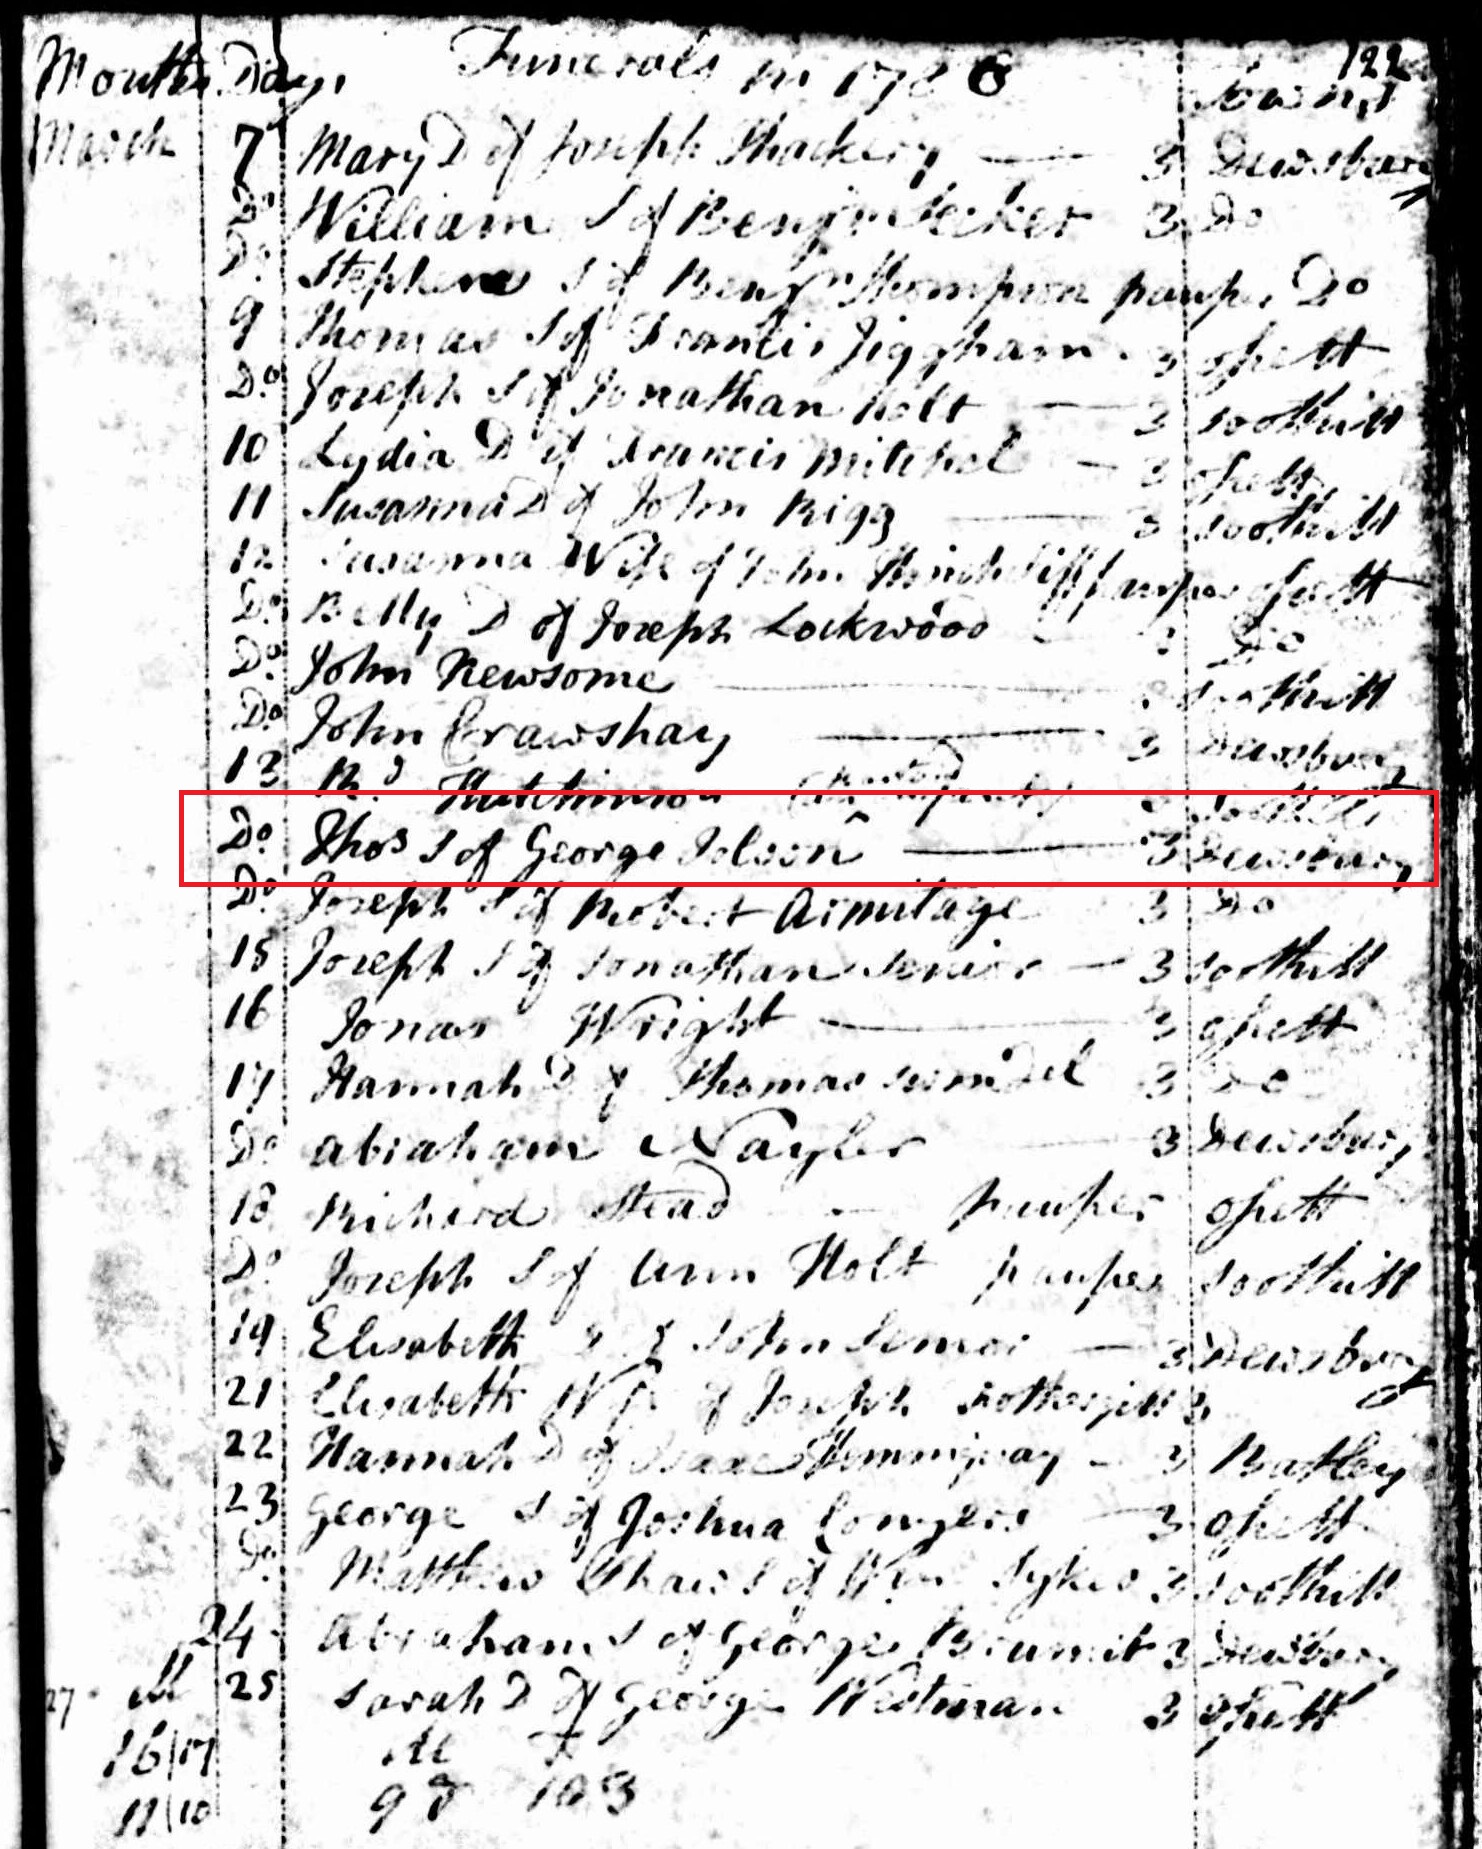 122
Month Days Funerals in 1786 Towns
March 7 Mary D of Joseph Thackery 3 Dewsbury
Do William S of Benjn Secker 3 Do
Do Stephen S of Benjn Thompson pauper Do
9 Thomas S of Francis Jiggham 3 Ossett
Do Joseph S of Jonathan Holt 3 Soothill
10 Lydia D of Francis Mitchel 3 Ossett
11 Susanna D of John Rigg 3 Soothill
12 Susanna Wife of John Hinchcliff pauper Ossett
Do Betty D of Joseph Lockwood Do
Do John Newsome Soothill
Do John Crawshay 3 Dewsbury
13 Rd Hutchinson Soothill
Do Thos S of George 3 Dewsbury
Do Joseph S of Robert Armitage 3 Do
15 Joseph S of Jonathan Senior 3 Soothill
16 Jonas Wright 3 Ossett
17 Hannah D of Thomas 3 Do
Do Abraham Nayler 3 Dewsbury
18 Richard Stead pauper Ossett
Do Joseph S of Ann Holt pauper Soothill
19 Elisabeth of John Senior 3 Dewsbury
21 Elisabeth Wife of Joseph 3
22 Hannah D of Isaac Hemmingway 3 Batley
23 George S of Joshua Conyers 3 Ossett
Do Matthew S of Wm Sykes 3 Soothill
24 Abraham S of George 3 Dewsbury
27 M 25 Sarah D of George Westman 3 Ossett
16|17
11|10 98 103